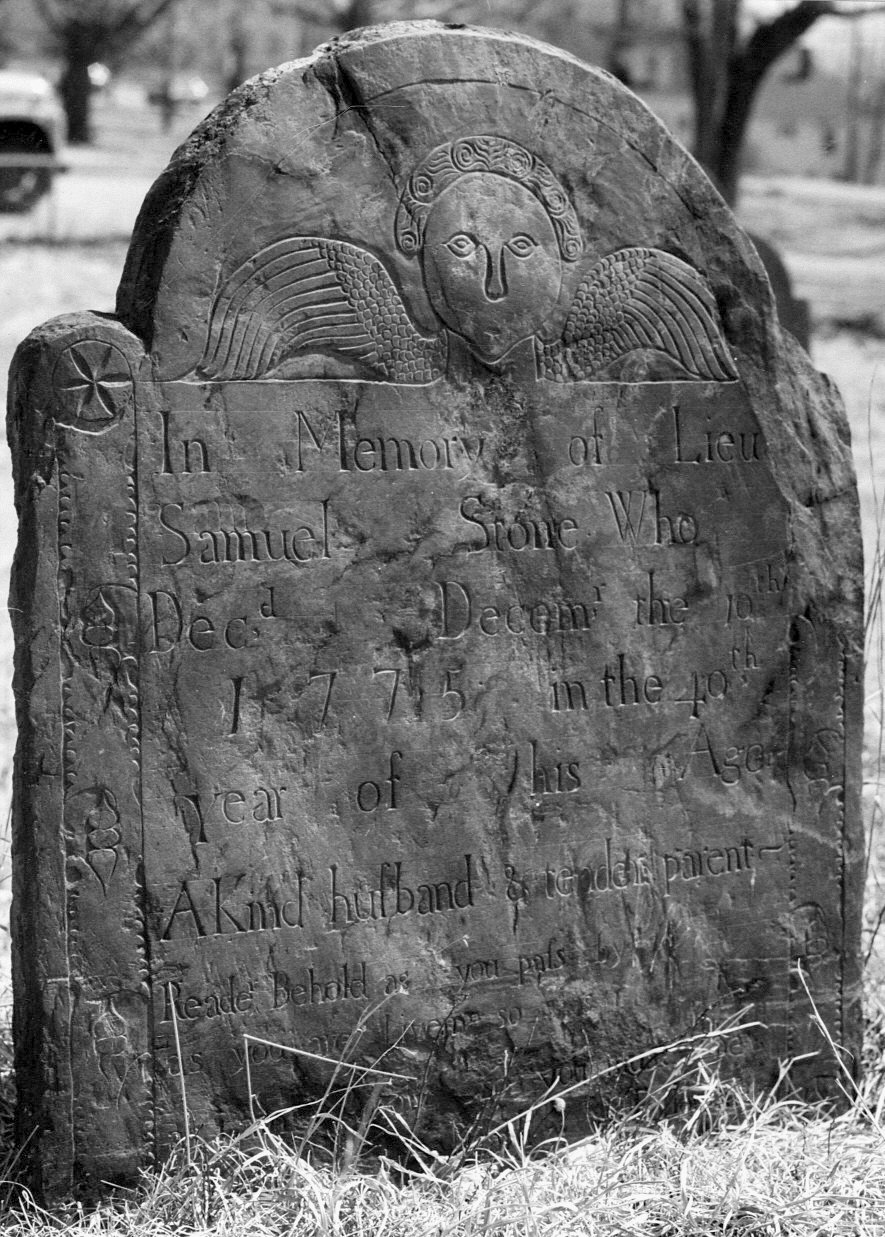 In Memory of Lieu
Samuel Stone Who
Decd Decemr the 10th
1775 in the 40th
year of his Age
A Kind huſband & tender parent
Reader Behold as you paſs by
as you are
you